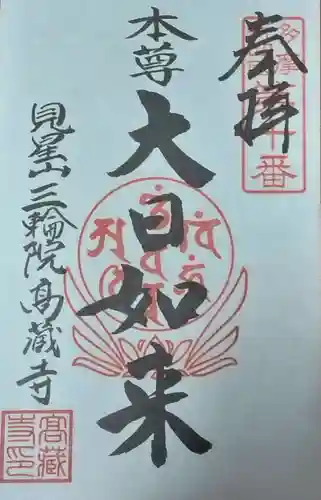 奉拝
本尊
大日如来
見星山三輪院高蔵寺
高蔵寺印